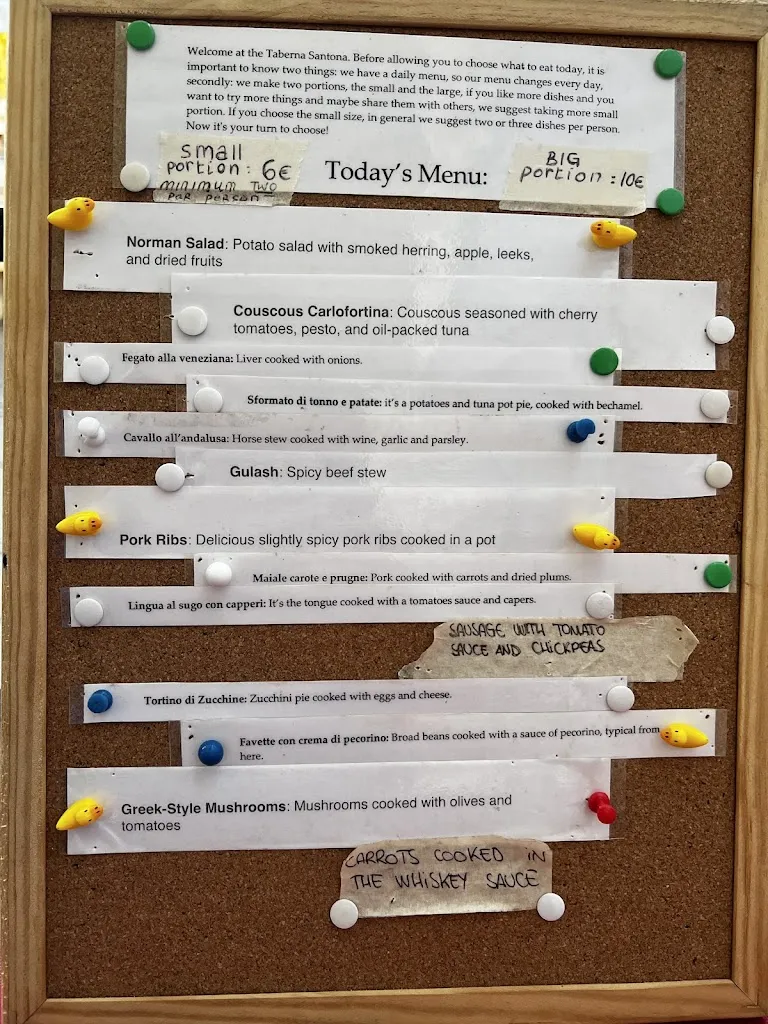 Welcome at the Taberna Santona. Before allowing you to choose what to eat today, it is
important to know two things: we have a daily menu, so our menu changes every day,
secondly: we make two portions, the small and the large, if you like more dishes and you
want to try more things and maybe share them with others, we suggest taking more small
portion. If you choose the small size, in general we suggest two or three dishes per person.
Now it's your turn to choose!
small
portion: 6€
minimum two
per person
Today's Menu:
BIG
portion: 10€
Norman Salad: Potato salad with smoked herring, apple, leeks,
and dried fruits
Couscous Carlofortina: Couscous seasoned with cherry
tomatoes, pesto, and oil-packed tuna
Fegato alla veneziana: Liver cooked with onions.
Sformato di tonno e patate: it's a potatoes and tuna pot pie, cooked with bechamel.
Cavallo all'andalusa: Horse stew cooked with wine, garlic and parsley.
Gulash: Spicy beef stew
Pork Ribs: Delicious slightly spicy pork ribs cooked in a pot
Maiale carote e prugne: Pork cooked with carrots and dried plums.
Lingua al sugo con capperi: It's the tongue cooked with a tomatoes sauce and capers.
SAUSAGE WITH TOMATO
SAUCE AND CHICKPEAS
Tortino di Zucchine: Zucchini pie cooked with eggs and cheese.
Favette con crema di pecorino: Broad beans cooked with a sauce of pecorino, typical from
here.
Greek-Style Mushrooms: Mushrooms cooked with olives and
tomatoes
CARROTS COOKED IN
THE WHISKEY SAUCE